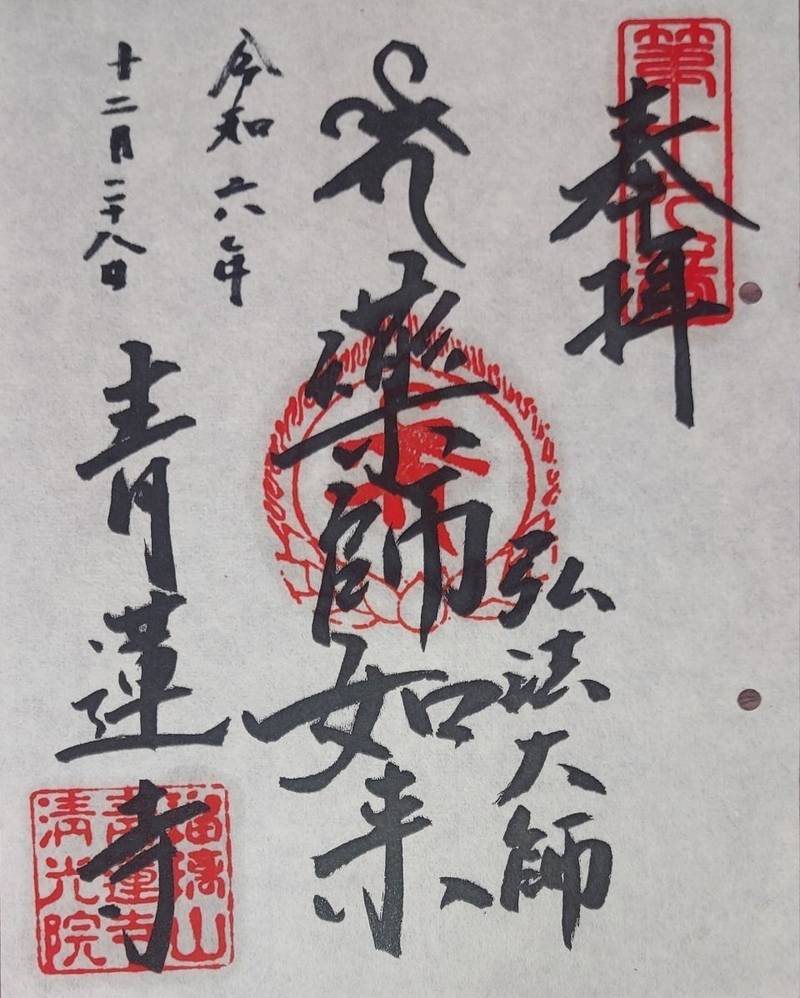 奉拝
弘法大師
藥師如来
令和六年
十二月二十八日
青蓮寺
瑠璃山
青蓮寺
清光院